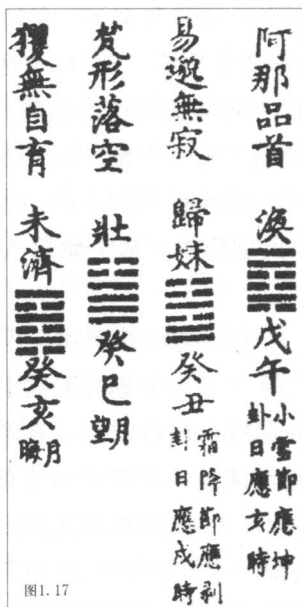 阿那品首 渙 戊午 小雪節應坤卦日應亥時
易邈無寂 歸妹 癸丑 霜降節應剥卦日應戌時
梵形落空 壯 癸巳 望月
玃無自育 未濟 癸亥 晦月
图1.17